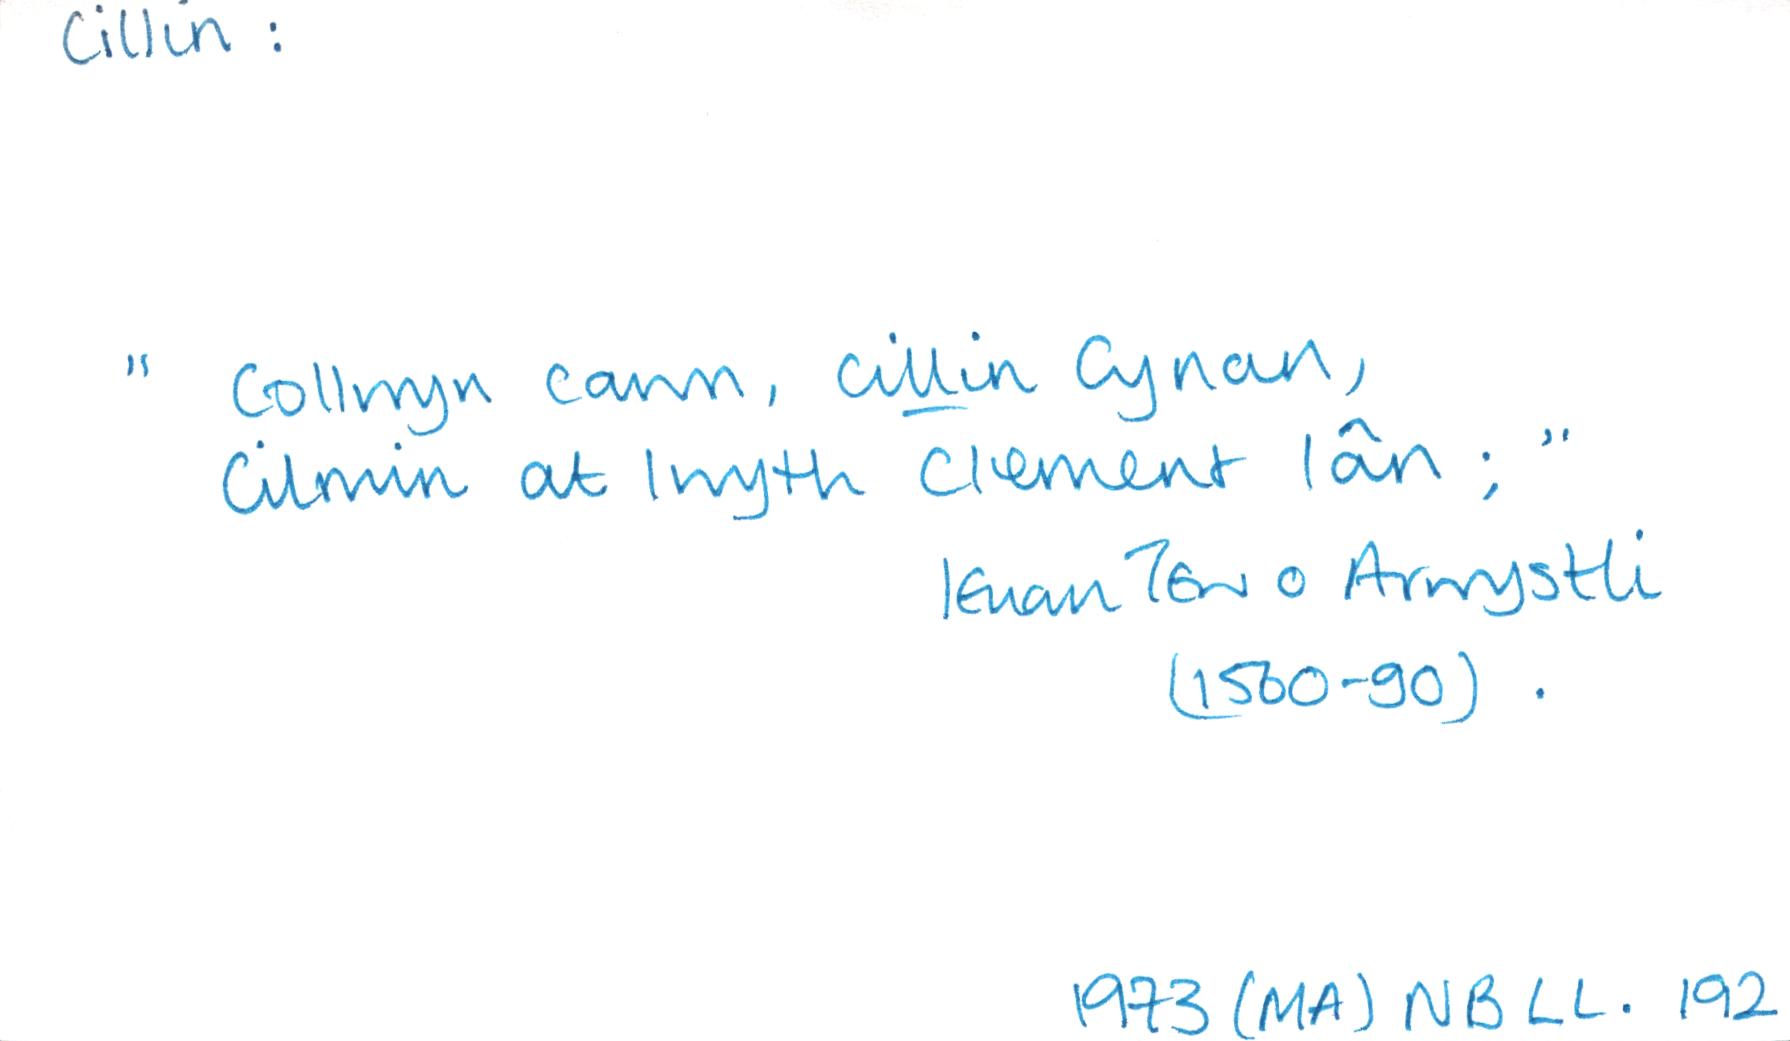 Cillin :
" Collwyn cann, cillin Cynan,
Cilmin at lwyth Clement lân ; "
Ieuan Tew o Arwystli
(1560-90) .
1973 (MA) NBLL. 192